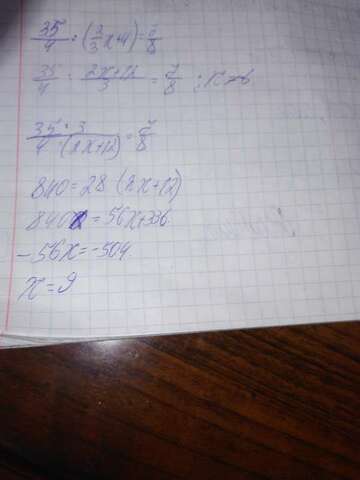 35/4 : (2/3 x + 4) = 7/8
35/4 : 2x+12/3 = 7/8 ; x≠-6
35 · 3/4 · (2x+12) = 7/8
840 = 28 (2x+12)
840 = 56x+336
-56x = -504
x = 9